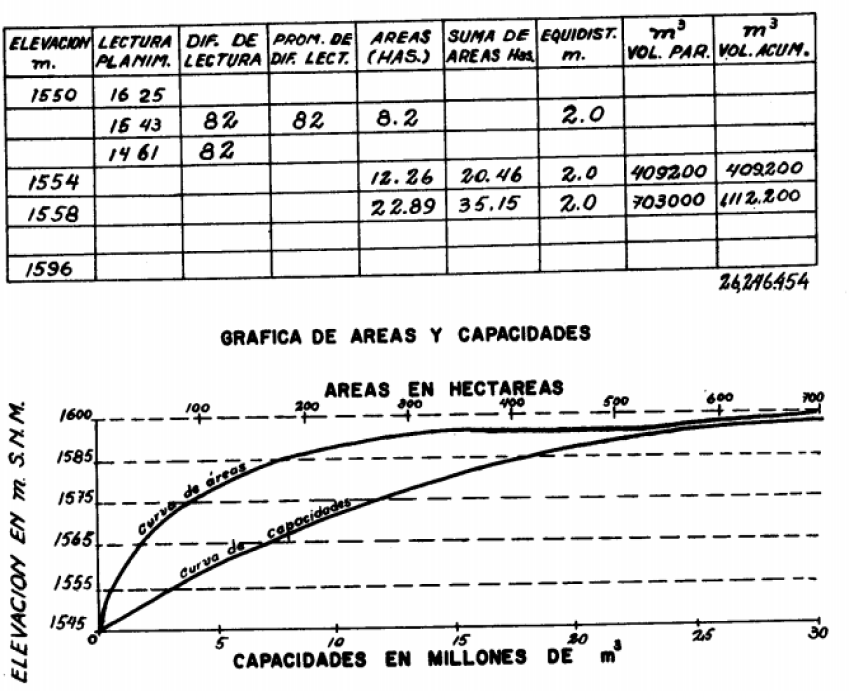 ELEVACION m. LECTURA PLANIM. DIF. DE LECTURA PROM. DE DIF. LECT. AREAS (HAS.) SUMA DE AREAS Has. EQUIDIST. m. m³ VOL. PAR. m³ VOL. ACUM.
1550 16 25
15 43 82 82 8.2 2.0
14 61 82
1554 12.26 20.46 2.0 409200 409200
1558 22.89 35.15 2.0 703000 1112.200
1596
26,246,454
GRAFICA DE AREAS Y CAPACIDADES
AREAS EN HECTAREAS
100 200 300 400 500 600 700
ELEVACION EN m. S.N.M.
1600
1585
1575
1565
1555
1545
Curva de áreas
Curva de capacidades
0 5 10 15 20 25 30
CAPACIDADES EN MILLONES DE m³